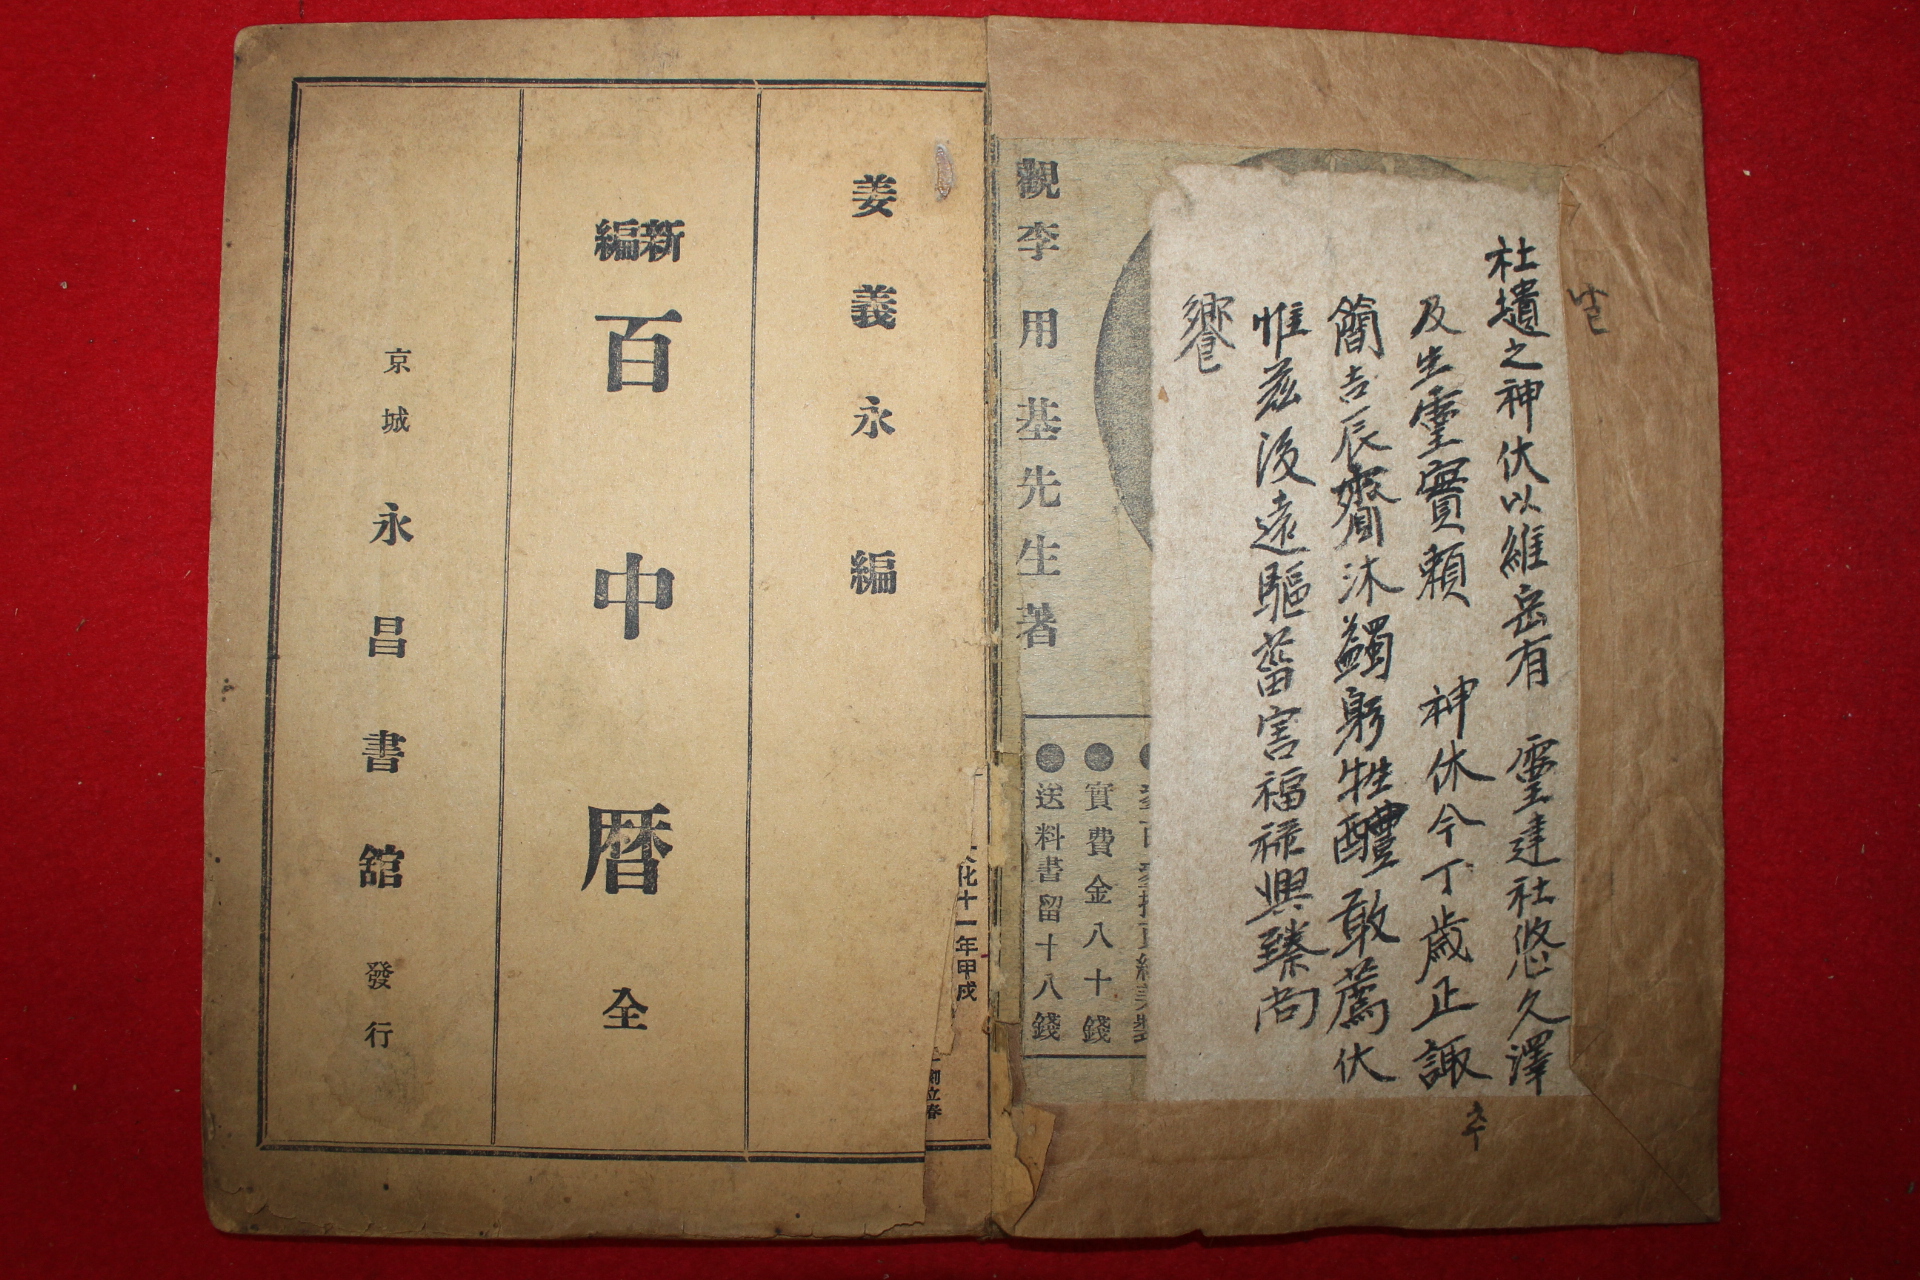 社壝之神伏以維岳有 靈建社悠久澤
及生靈實賴 神休今丁歲正諏
簡吉辰齋沐蠲躬牲醴敢薦伏
惟茲後遠驅菑害福祿興臻尚
饗
觀李用基先生著
●實費金八十錢
●送料書留十八錢
化十一年甲戌
立春
姜義永編
新編 百中曆 全
京城 永昌書館 發行